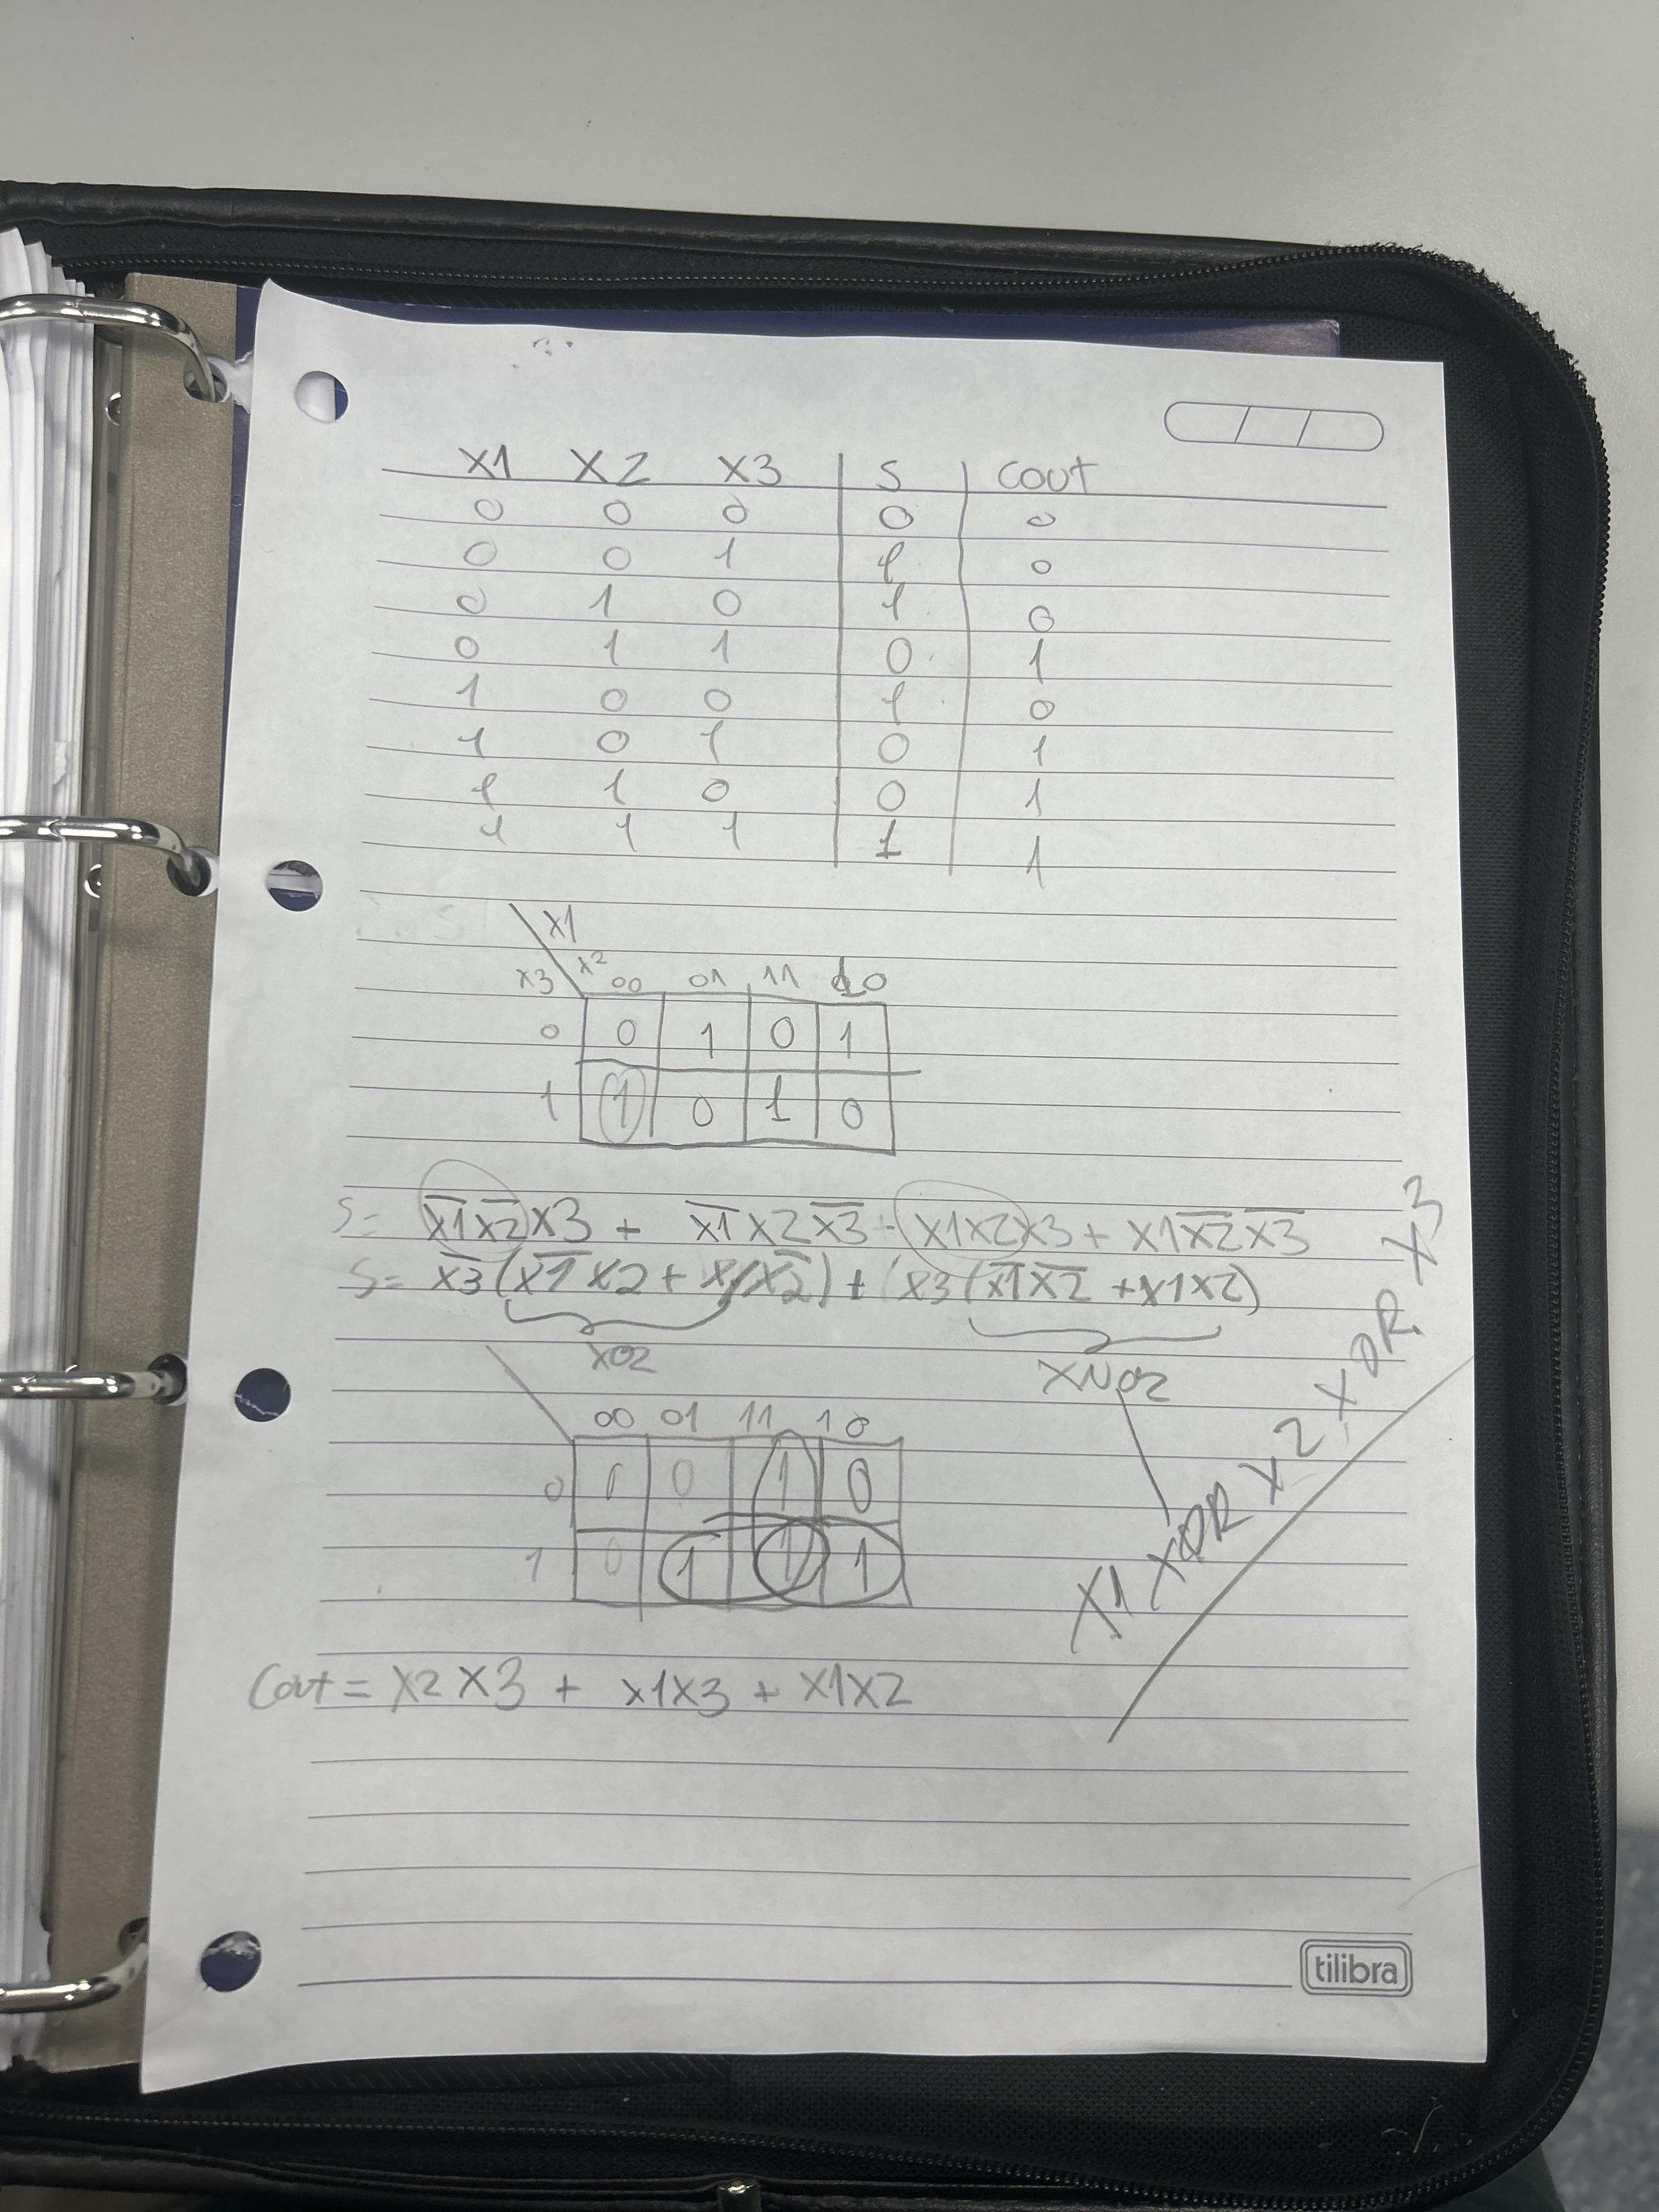 X1 X2 X3 S Cout
0 0 0 0 0
0 0 1 1 0
0 1 0 1 0
0 1 1 0 1
1 0 0 1 0
1 0 1 0 1
1 1 0 0 1
1 1 1 1 1
X1
X3 X2 00 01 11 10
0 0 1 0 1
1 1 0 1 0
S= X̅1̅X̅2̅X3 + X̅1̅X2X̅3̅ + X1X2X3 + X1X̅2̅X̅3̅
S= X̅3̅(X̅1̅X2 + X1X̅2̅) + (X3(X̅1̅X̅2̅ + X1X2)
XOR XNOR
X1 XOR X2 XOR X3
00 01 11 10
0 0 0 1 0
1 0 1 1 1
Cout = X2X3 + X1X3 + X1X2
tilibra